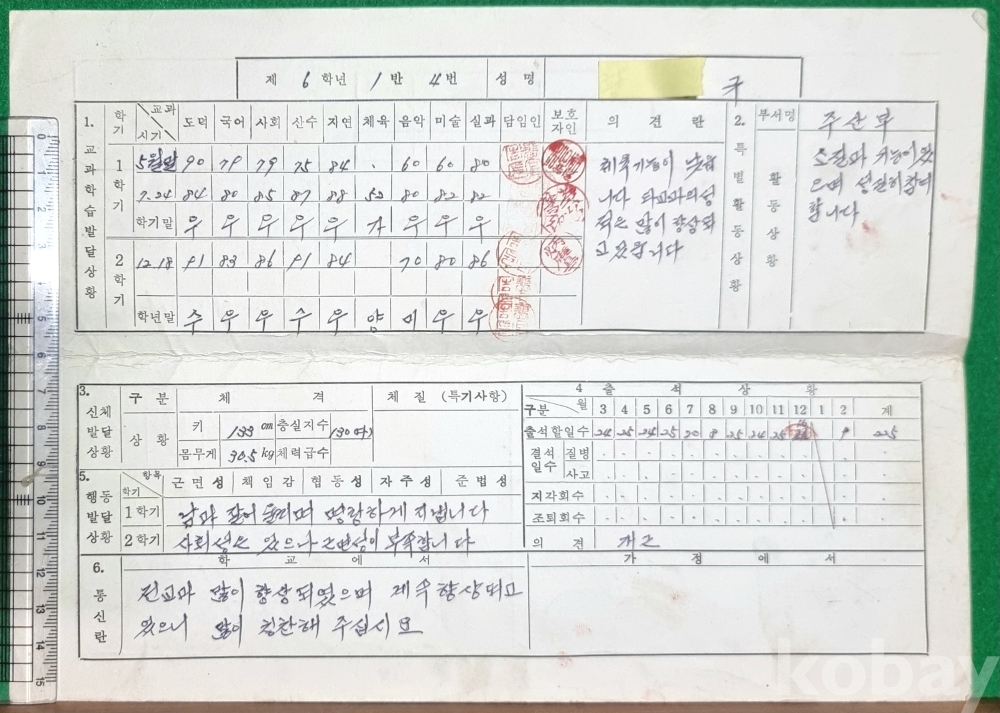 제 6 학년 1 반 4 번 성명 국
1. 교과학습발달상황
학기 교과 시기 도덕 국어 사회 산수 자연 체육 음악 미술 실과 담임인 보호자인 의견란
1학기 5월말 90 79 79 75 84 . 60 60 80
7.24 84 80 85 87 88 52 80 82 82
학기말 우 우 우 우 우 가 우 우 우
2학기 12.18 91 83 86 91 84 70 80 86
학년말 수 우 우 수 우 양 미 우 우
체육 기능이 낮습
니다 타교과의 성
적은 많이 향상되
고 있읍니다
2. 특별활동상황
부서명 주산부
활동상황
소질과 기능이 있
으며 성실히 참여
합니다
3. 신체발달상황
구분 체격 체질 (특기사항)
상황 키 133 cm 충실지수 130
몸무게 30.5 kg 체력급수
4 출석상황
구분 월 3 4 5 6 7 8 9 10 11 12 1 2 계
출석할일수 24 25 24 25 20 8 25 24 25 9 225
결석일수 질병
사고
지각회수
조퇴회수
의견 개근
5. 행동발달상황
항목 학기 근면성 책임감 협동성 자주성 준법성
1학기 남과 잘 어울리며 명랑하게 지냅니다
2학기 사회성은 있으나 근면성이 부족합니다
6. 통신란
학교에서 가정에서
전교과 많이 향상되었으며 계속 향상되고
있으니 많이 칭찬해 주십시요
0 1 2 3 4 5 6 7 8 9 10 11 12 13 14 15
kobay